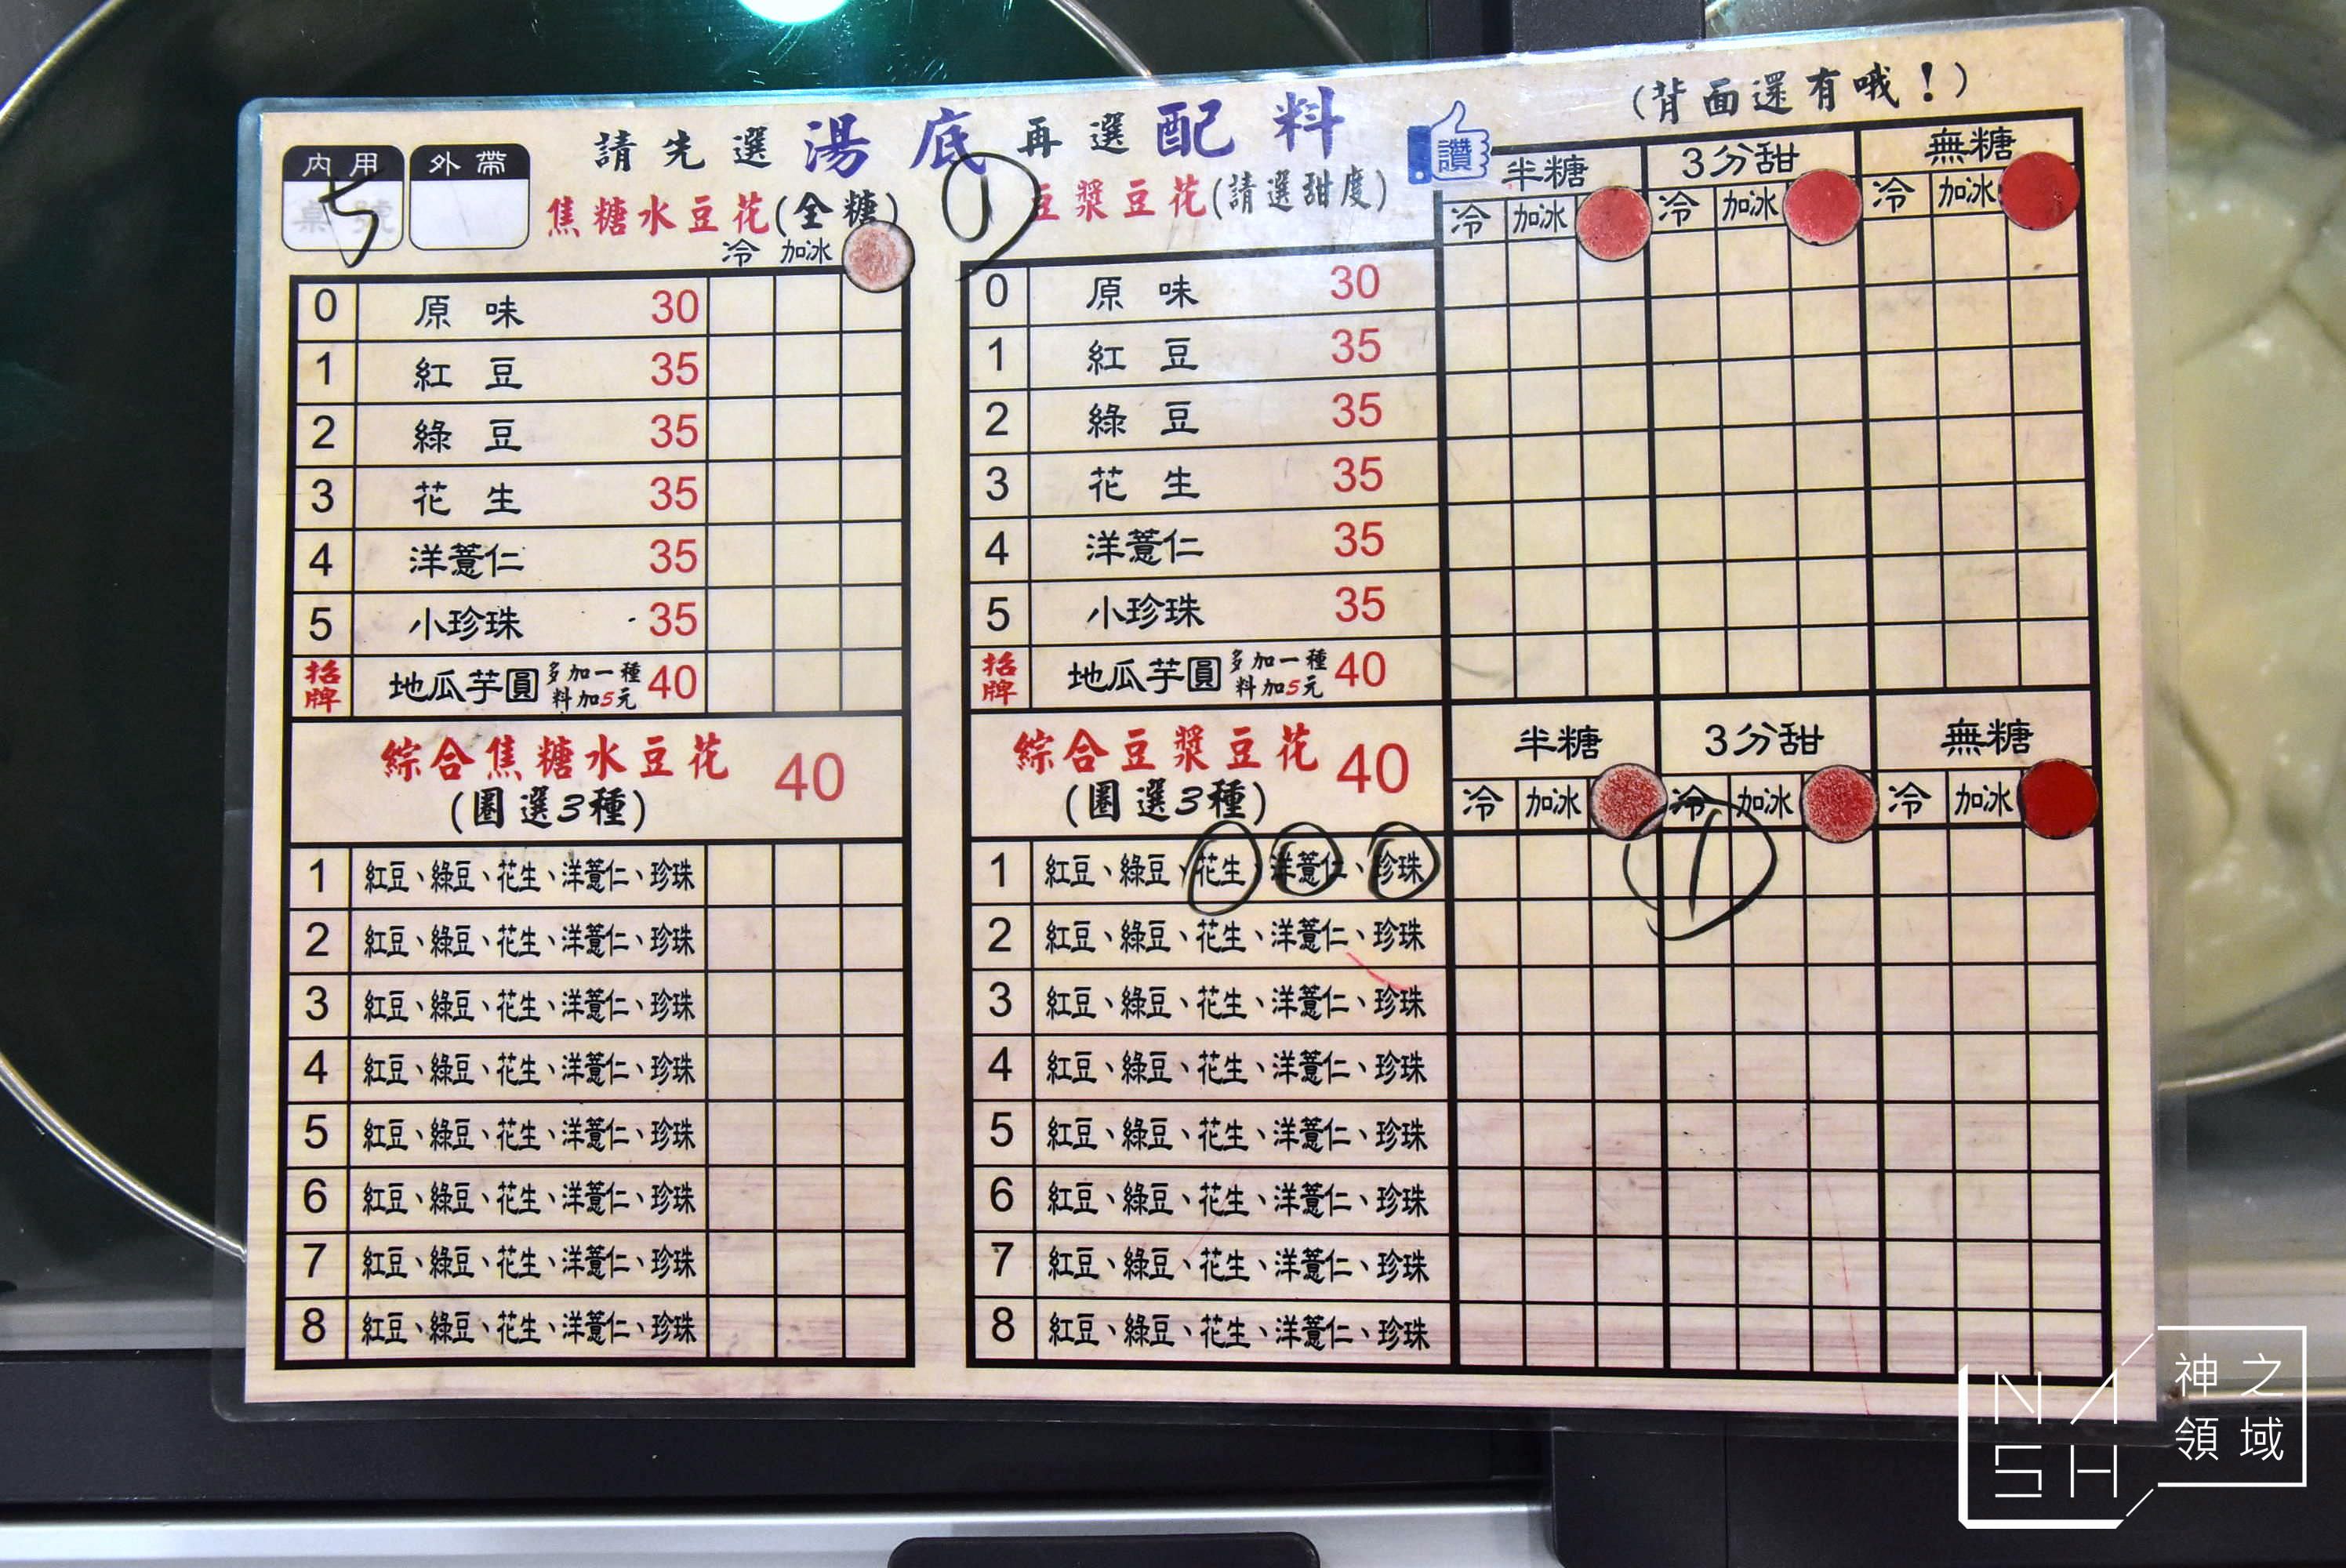 (背面還有哦！)
請先選湯底再選配料 讚
內用 外帶
5
桌號
焦糖水豆花(全糖)
冷 加冰
0 原味 30
1 紅豆 35
2 綠豆 35
3 花生 35
4 洋薏仁 35
5 小珍珠 35
招牌 地瓜芋圓 多加一種料加5元 40
綜合焦糖水豆花 40
(圈選3種)
1 紅豆、綠豆、花生、洋薏仁、珍珠
2 紅豆、綠豆、花生、洋薏仁、珍珠
3 紅豆、綠豆、花生、洋薏仁、珍珠
4 紅豆、綠豆、花生、洋薏仁、珍珠
5 紅豆、綠豆、花生、洋薏仁、珍珠
6 紅豆、綠豆、花生、洋薏仁、珍珠
7 紅豆、綠豆、花生、洋薏仁、珍珠
8 紅豆、綠豆、花生、洋薏仁、珍珠
1 豆漿豆花(請選甜度)
半糖 3分甜 無糖
冷 加冰 冷 加冰 冷 加冰
0 原味 30
1 紅豆 35
2 綠豆 35
3 花生 35
4 洋薏仁 35
5 小珍珠 35
招牌 地瓜芋圓 多加一種料加5元 40
綜合豆漿豆花 40
(圈選3種)
半糖 3分甜 無糖
冷 加冰 冷 加冰 冷 加冰
1 紅豆、綠豆、花生、洋薏仁、珍珠 1
2 紅豆、綠豆、花生、洋薏仁、珍珠
3 紅豆、綠豆、花生、洋薏仁、珍珠
4 紅豆、綠豆、花生、洋薏仁、珍珠
5 紅豆、綠豆、花生、洋薏仁、珍珠
6 紅豆、綠豆、花生、洋薏仁、珍珠
7 紅豆、綠豆、花生、洋薏仁、珍珠
8 紅豆、綠豆、花生、洋薏仁、珍珠
NASH
神之領域